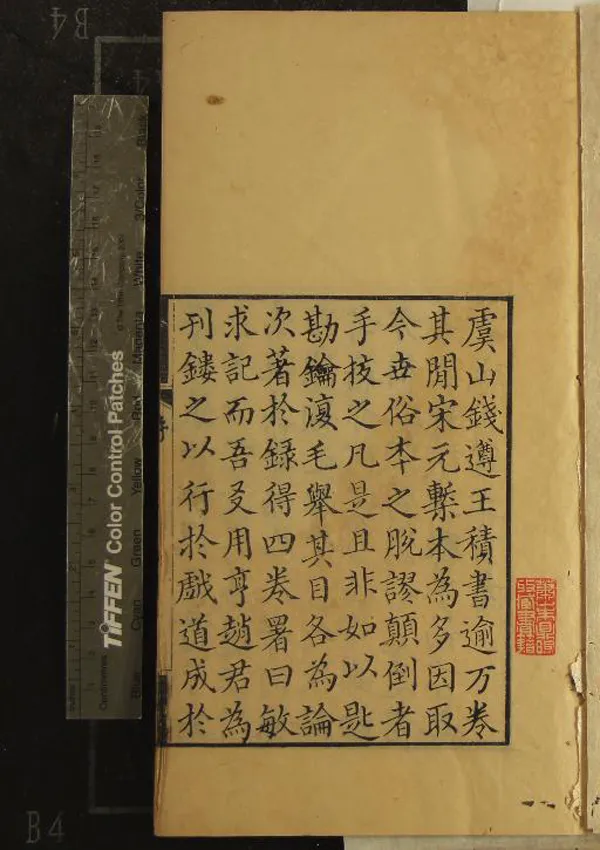 虞山錢遵王積書逾万卷
其閒宋元槧本為多因取
今世俗本之脫謬顛倒者
手挍之凡是且非如以匙
勘鑰復毛舉其目各為論
次著於錄得四卷署曰敏
求記而吾友用亨趙君為
刊鏤之以行於戲道成於
序
B4
B4
TIFFEN Color Control Patches
© The Tiffen Company, 2000
Centimetres
Cyan
Green
Yellow
Red
Magenta
White
3/Color
Black